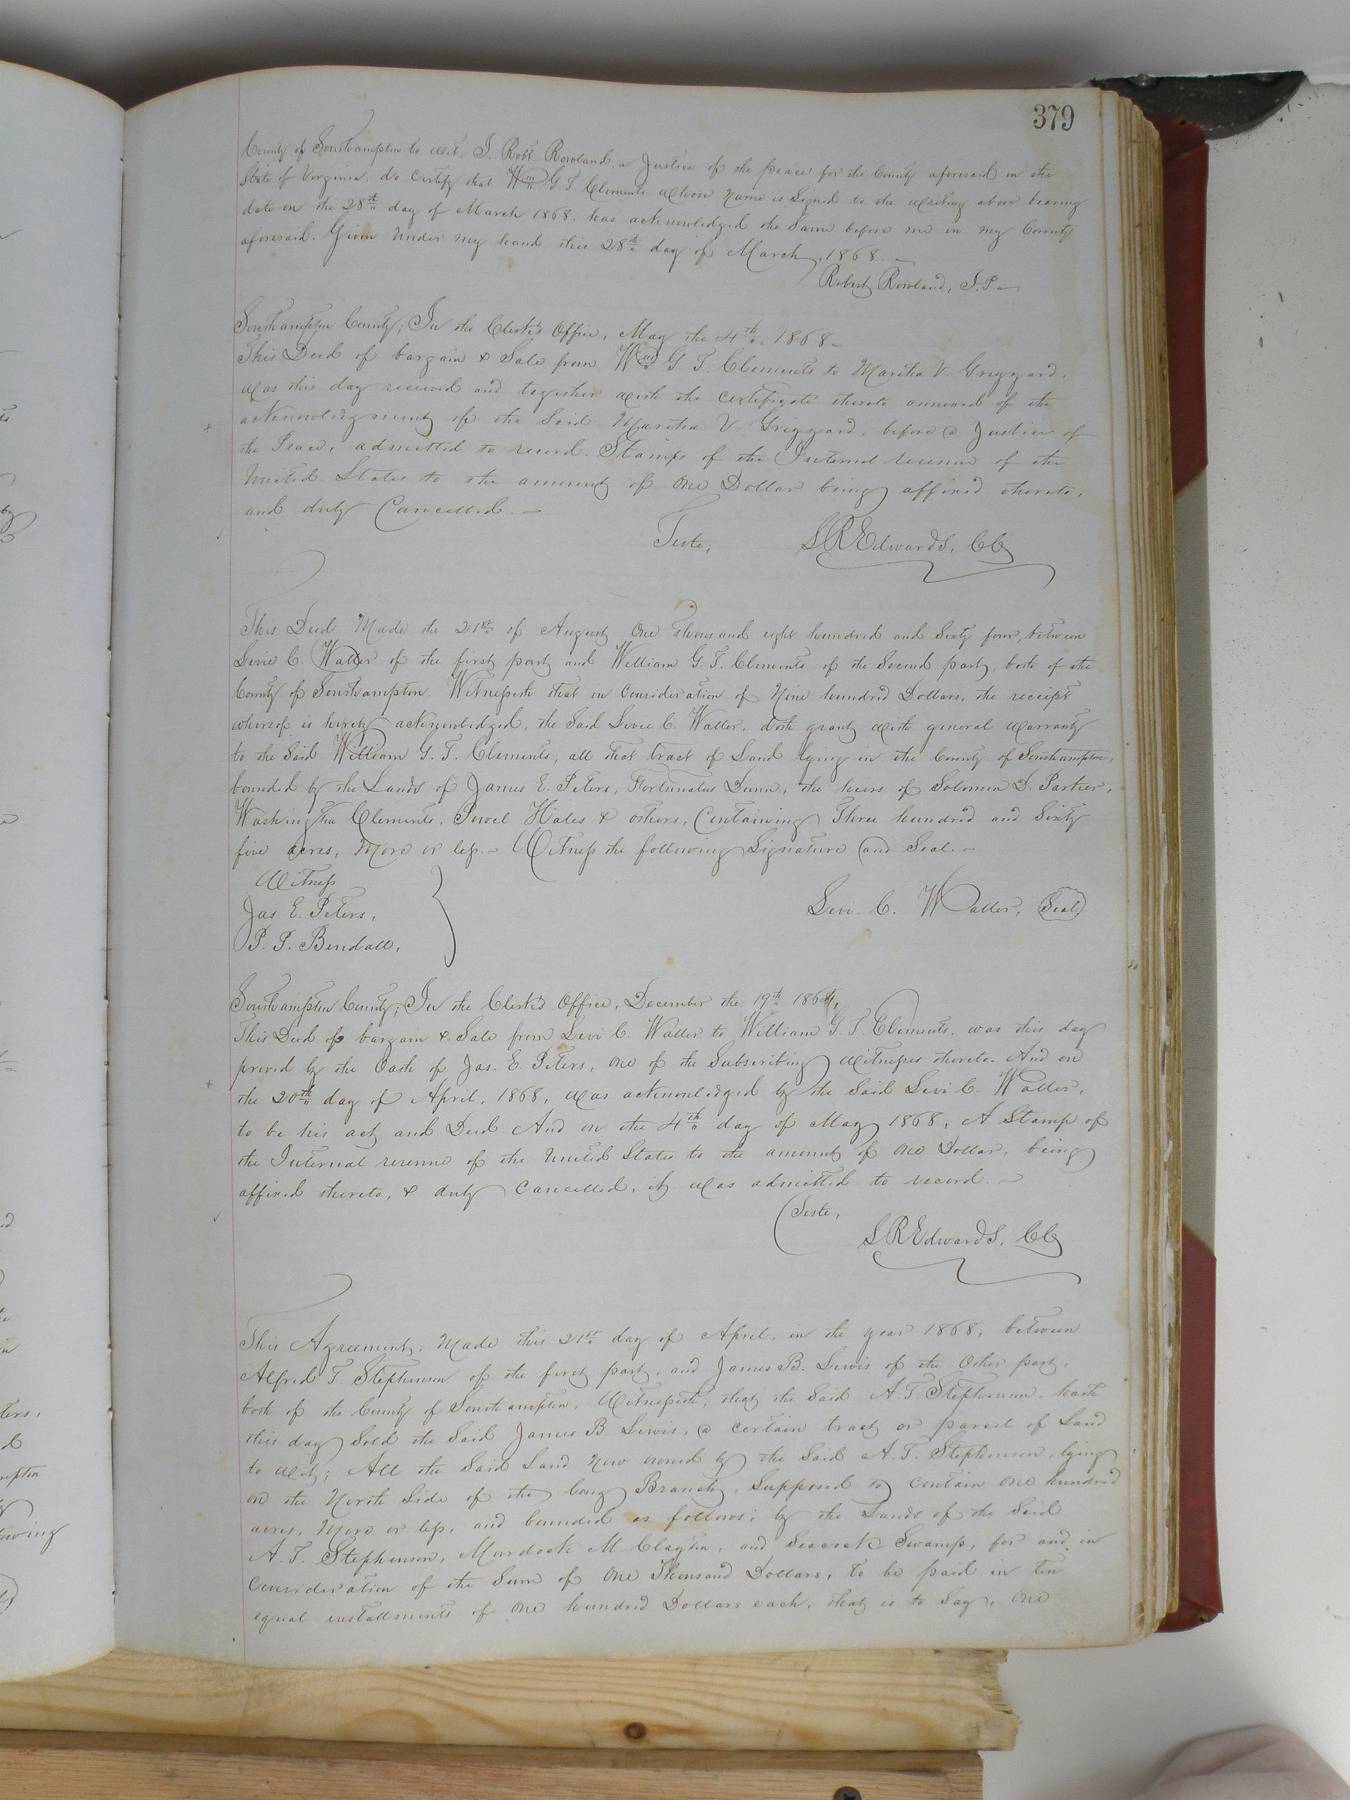 379
County of Southampton to wit, I Robt. Rowland, a Justice of the peace for the County aforesaid in the
State of Virginia, do certify that Wm G. T. Clements whose name is Signed to the writing above bearing
date on the 28th day of March 1868. has acknowledged the Same before me in my County
aforesaid. Given under my hand this 28th day of March, 1868.
Robert Rowland, J.P.
Southampton County; In the Clerk's Office, May the 4th 1868
This Deed of bargain & Sale from Wm G. T. Clements to Maritha V. Greggard.
was this day received and together with the certificate thereto annexed of the
acknowledgment of the Said Maritha V. Greggard, before a Justice of
the Peace, admitted to record. Stamps of the Internal revenue of the
United States to the amount of One Dollar being affixed thereto,
and duly Cancelled.
Teste,
LREdwards, CC
This Deed Made the 21st of August One thousand eight hundred and Sixty four, between
Levi C. Waller of the first party and William G. T. Clements of the Second party, both of the
County of Southampton Witnesseth that in Consideration of Nine hundred Dollars, the receipt
whereof is hereby acknowledged, the Said Levi C. Waller, doth grant with general warranty
to the Said William G. T. Clements, all that tract of Land lying in the County of Southampton,
bounded by the Lands of James E. Peters, Fortunatus Dunn, the heirs of Solomon D. Parker,
Washington Clements, Jewel Hales & others, Containing Three hundred and Sixty
five acres, More or less. Witness the following Signature and Seal.
Witness
Jas E. Peters,
P. P. Bendall,
Levi. C. Waller, Seal
Southampton County; In the Clerk's Office, December the 19th 1864,
This Deed of bargain & Sale from Levi C. Waller to William G. T. Clements, was this day
proved by the Oath of Jas. E. Peters, one of the Subscribing Witnesses thereto. And on
the 20th day of April, 1868, was acknowledged by the Said Levi C. Waller,
to be his act and Deed And on the 4th day of May 1868, A Stamp of
the Internal revenue of the United States to the amount of One Dollar, being
affixed thereto, & duly cancelled, it was admitted to record.
Teste,
LREdwards, CC
This Agreement, Made this 21st day of April, in the year 1868, between
Alfred T Stephenson of the first party, and James B. Lewis of the Other part,
both of the County of Southampton, Witnesseth, that the Said A. T. Stephenson, hath
this day Sold the Said James B. Lewis, a certain tract or parcel of Land
to wit; All the Said Land now owned by the Said A. T. Stephenson, lying
on the North Side of the Long Branch, Supposed to contain One hundred
acres, More or less, and bounded as follows; by the Lands of the Said
A. T. Stephenson, Murdock M. Clayton, and Seacock Swamp, for and in
Consideration of the Sum of One Thousand Dollars, to be paid in ten
equal installments of One hundred Dollars each, that is to Say, One